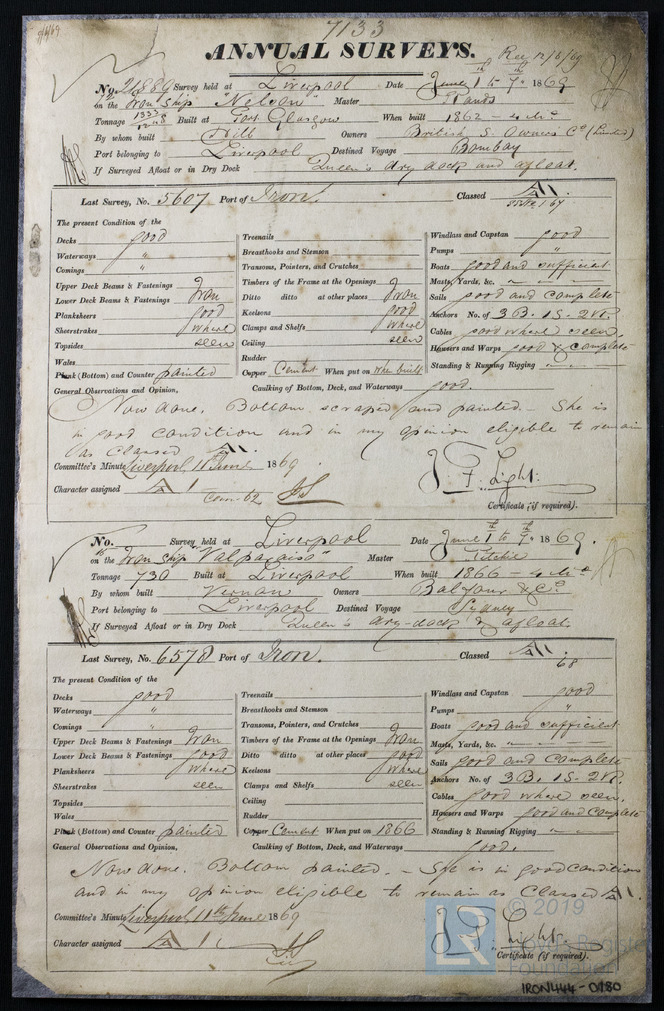 7133
ANNUAL SURVEYS.
Rec 12/6/69
No. 21889 Survey held at Liverpool Date June 1st to 7th 1869
on the Iron Ship "Nelson" Master
Tonnage Built at Port Glasgow When built 1862 - 4 Mo
By whom built Hill Owners British S. Owners Co (Limited)
Port belonging to Liverpool Destined Voyage Bombay
If Surveyed Afloat or in Dry Dock Queen's dry dock and afloat.
Last Survey, No. 5607 Port of Iron. Classed A1.
The present Condition of the
Decks good Treenails Windlass and Capstan good
Waterways " Breasthooks and Stemson Pumps "
Comings " Transoms, Pointers, and Crutches Boats good and sufficient
Upper Deck Beams & Fastenings Timbers of the Frame at the Openings Iron Masts, Yards, &c. "
Lower Deck Beams & Fastenings Iron Ditto ditto at other places Iron Sails good and complete
Planksheers good Keelsons good Anchors No. of 3B. 1S. 2K.
Sheerstrakes where Clamps and Shelfs where Cables good where seen.
Topsides seen Ceiling seen Hawsers and Warps good & complete
Wales Rudder Standing & Running Rigging
Plank (Bottom) and Counter painted Copper Cement When put on when built
General Observations and Opinion, Caulking of Bottom, Deck, and Waterways good.
Now done. Bottom scraped and painted - She is
in good condition and in my opinion eligible to remain
as Classed A1.
Committee's Minute Liverpool, 11 June 1869.
Character assigned A1
J. F. Light.
Certificate (if required).
No. Survey held at Liverpool Date June 1st to 7th 1869.
on the Iron Ship "Valparaiso" Master Ritchie
Tonnage 730 Built at Liverpool When built 1866 - 4 Mo
By whom built Vernon Owners Balfour & Co
Port belonging to Liverpool Destined Voyage Sydney
If Surveyed Afloat or in Dry Dock Queen's dry-dock & afloat.
Last Survey, No. 6578 Port of Iron. Classed A1. 68
The present Condition of the
Decks good Treenails Windlass and Capstan good
Waterways " Breasthooks and Stemson Pumps "
Comings " Transoms, Pointers, and Crutches Boats good and sufficient
Upper Deck Beams & Fastenings Iron Timbers of the Frame at the Openings Iron Masts, Yards, &c. "
Lower Deck Beams & Fastenings good Ditto ditto at other places good Sails good and complete
Planksheers where Keelsons where Anchors No. of 3B. 1S. 2K.
Sheerstrakes seen Clamps and Shelfs seen Cables good where seen.
Topsides Ceiling Hawsers and Warps good and complete
Wales Rudder Standing & Running Rigging
Plank (Bottom) and Counter painted Copper Cement When put on 1866
General Observations and Opinion, Caulking of Bottom, Deck, and Waterways good.
Now done. Bottom painted. - She is in good condition
and in my opinion eligible to remain as Classed A1.
Committee's Minute Liverpool, 11th June 1869
Character assigned A1
J. F. Light.
Certificate (if required).
© 2019
LR
Lloyd's Register
Foundation
IRON444-0180